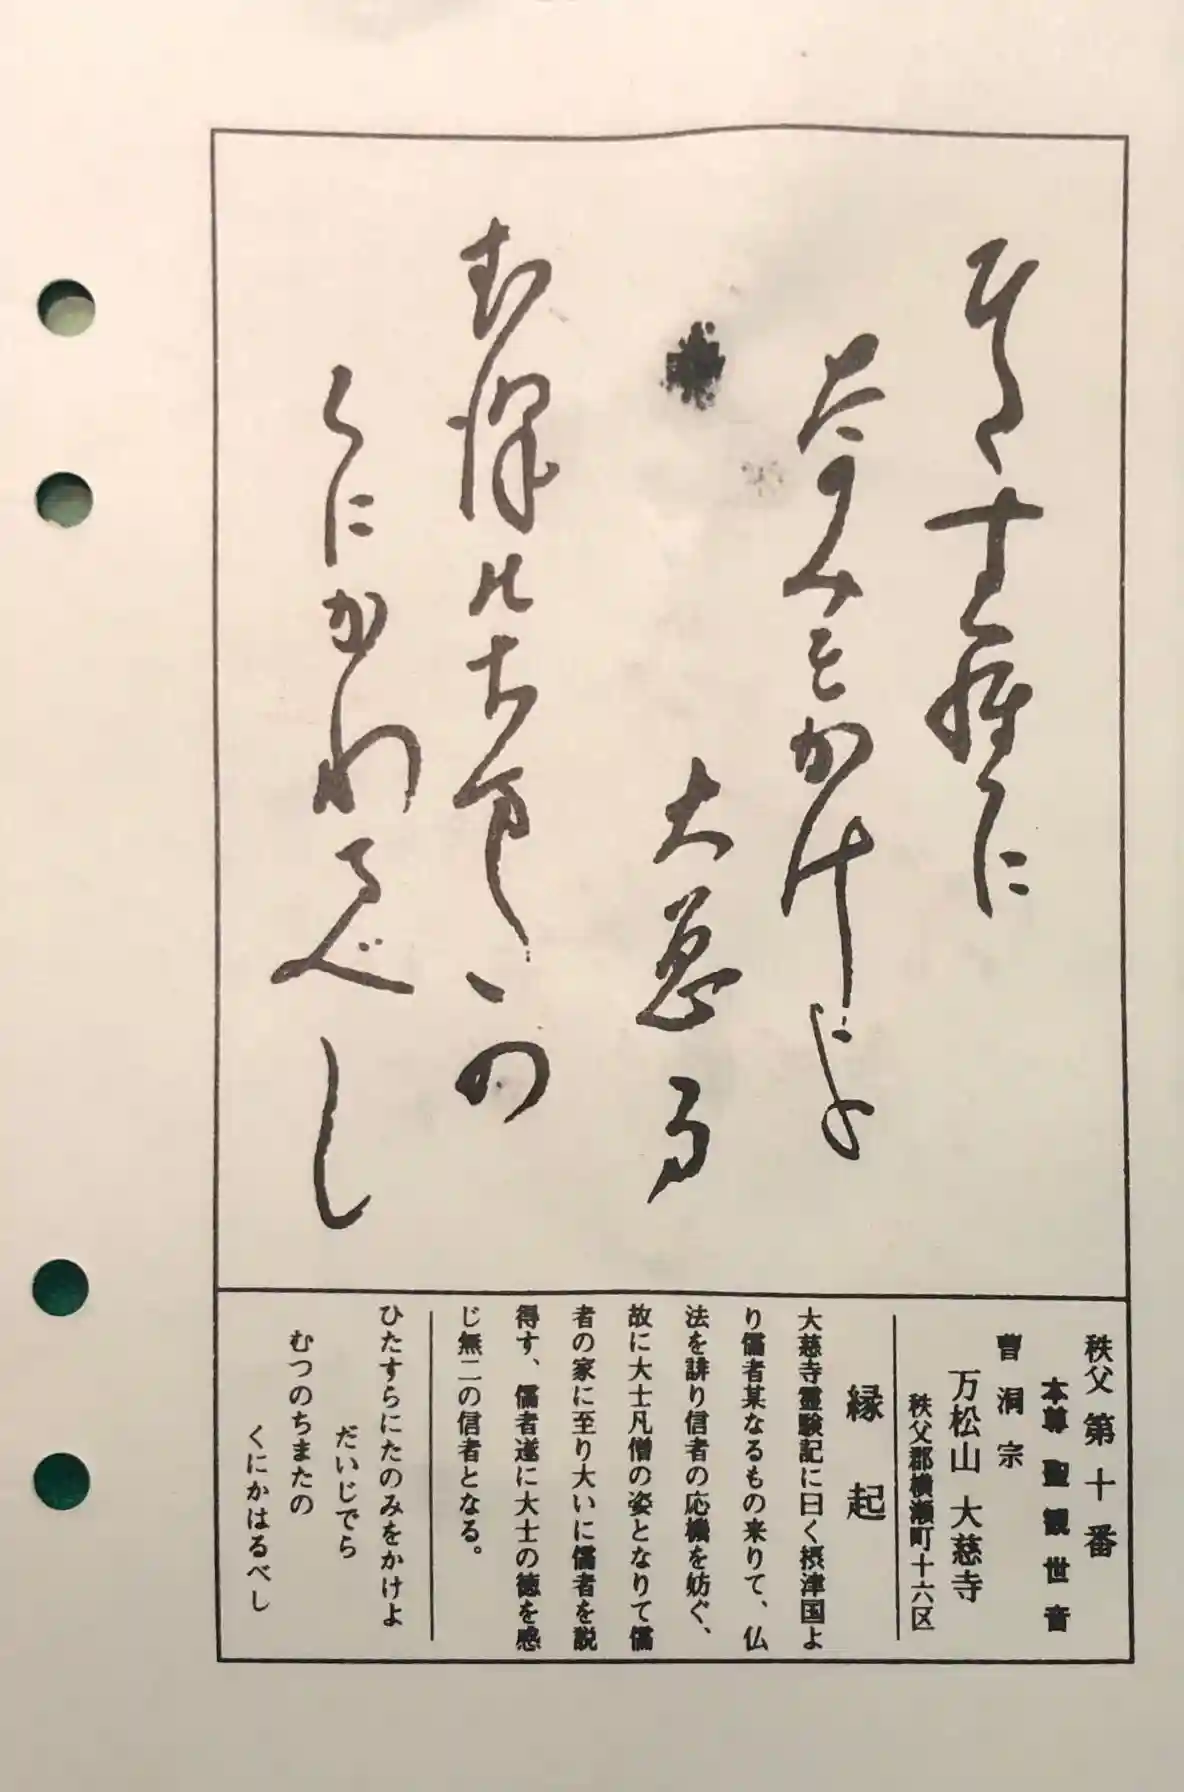 ひたすらに
たのみをかけよ
大慈寺
むつのちまたの
くにかわるべし
秩父第十番
本尊 聖観世音
曹洞宗
万松山 大慈寺
秩父郡横瀬町十六区
縁起
大慈寺霊験記に曰く摂津国よ
り儒者某なるもの来りて、仏
法を誹り信者の応機を妨ぐ、
故に大士凡僧の姿となりて儒
者の家に至り大いに儒者を説
得す、儒者遂に大士の徳を感
じ無二の信者となる。
ひたすらにたのみをかけよ
だいじでら
むつのちまたの
くにかはるべし